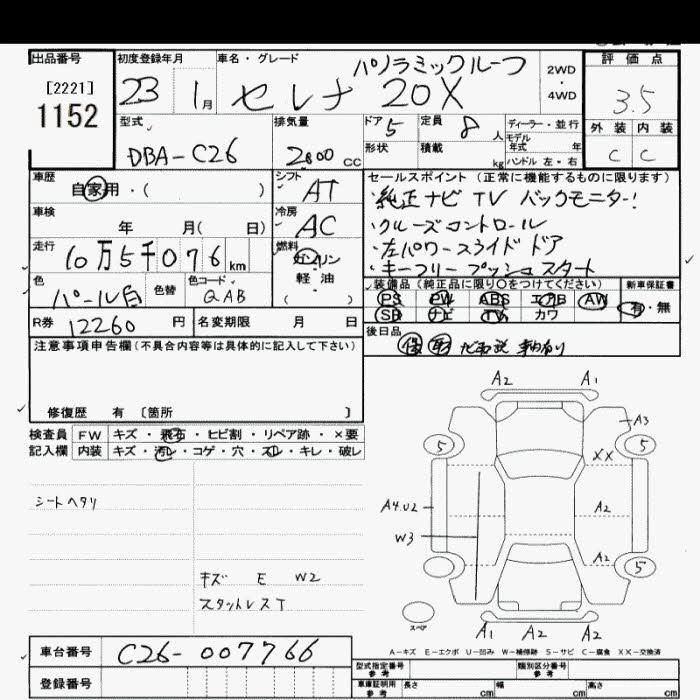 出品番号
[2221]
1152
初度登録年月
23 1月
車名・グレード
パノラミックルーフ
セレナ 20X
2WD
・
4WD
評価点
3.5
外装 内装
C C
型式
DBA-C26
排気量
2000 CC
ドア 5
定員 8 人
形状
積載 kg
ディーラー・並行
モデル年式 年
ハンドル 左・右
車歴
自家用・( )
車検
年 月( 日)
走行
10万5千076 km
色
パール白
色替
色コード
QAB
シフト
AT
冷房
AC
燃料
ガソリン
軽・油
( )
セールスポイント (正常に機能するものに限ります)
・純正ナビ TV バックモニター!
・クルーズコントロール
・左パワースライドドア
・キーフリープッシュスタート
装備品(純正品に限り〇をつけてください)
PS PW ABS エアB AW
SR ナビ TV カワ
新車保証書
有・無
R券 12260 円
名変期限 月 日
後日品
注意事項申告欄(不具合内容等は具体的に記入して下さい)
修復歴 有 〔箇所 〕
検査員 FW キズ・飛石・ヒビ割・リペア跡・×要
記入欄 内装 キズ・汚レ・コゲ・穴・スレ・キレ・破レ
シートヘタリ
キズ E W2
スタットレスT
A2 A1
A3
5 5
XX
A4.U2
A2
W3
A2
5
スペア
A1 A2 A2
A-キズ E-エクボ U-凹み W-補修跡 S-サビ C-腐食 XX-交換済
車台番号 C26-007766
登録番号
型式指定番号
参考
類別区分番号
参考
車庫証明用
参考
長さ cm 幅 cm 高さ cm